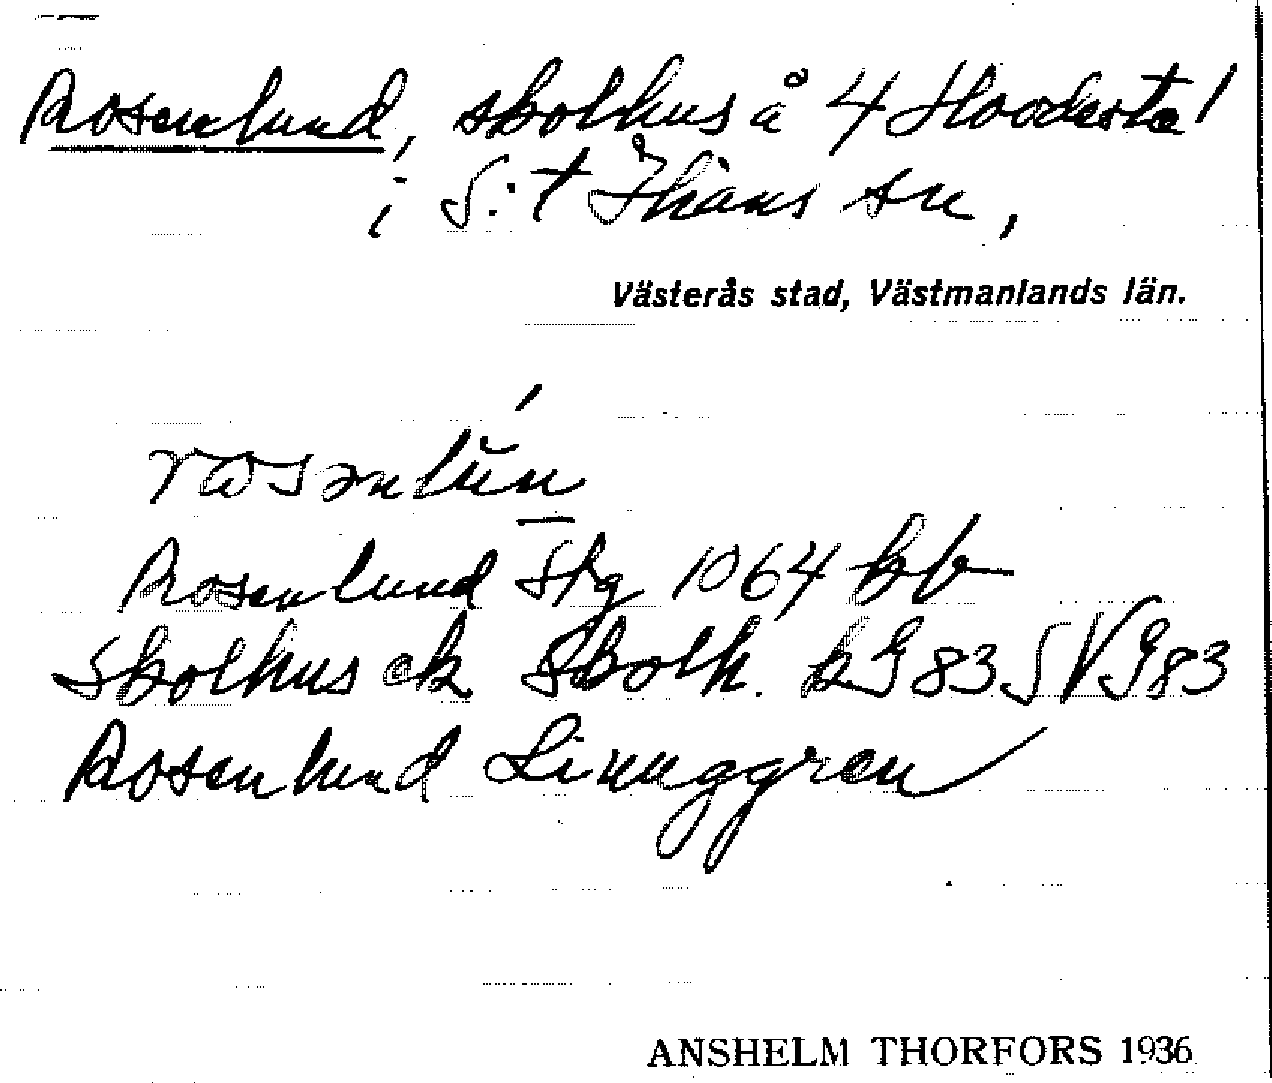 Rosenlund, skolhus å 4 Hood
i S:t Ilians sn,
Västerås stad, Västmanlands län.
Rosenlund Stg 1064 kb
Skolhus ek Skolh. k G 83 S V G83
Rosenlund Linnggren
ANSHELM THORFORS 1936